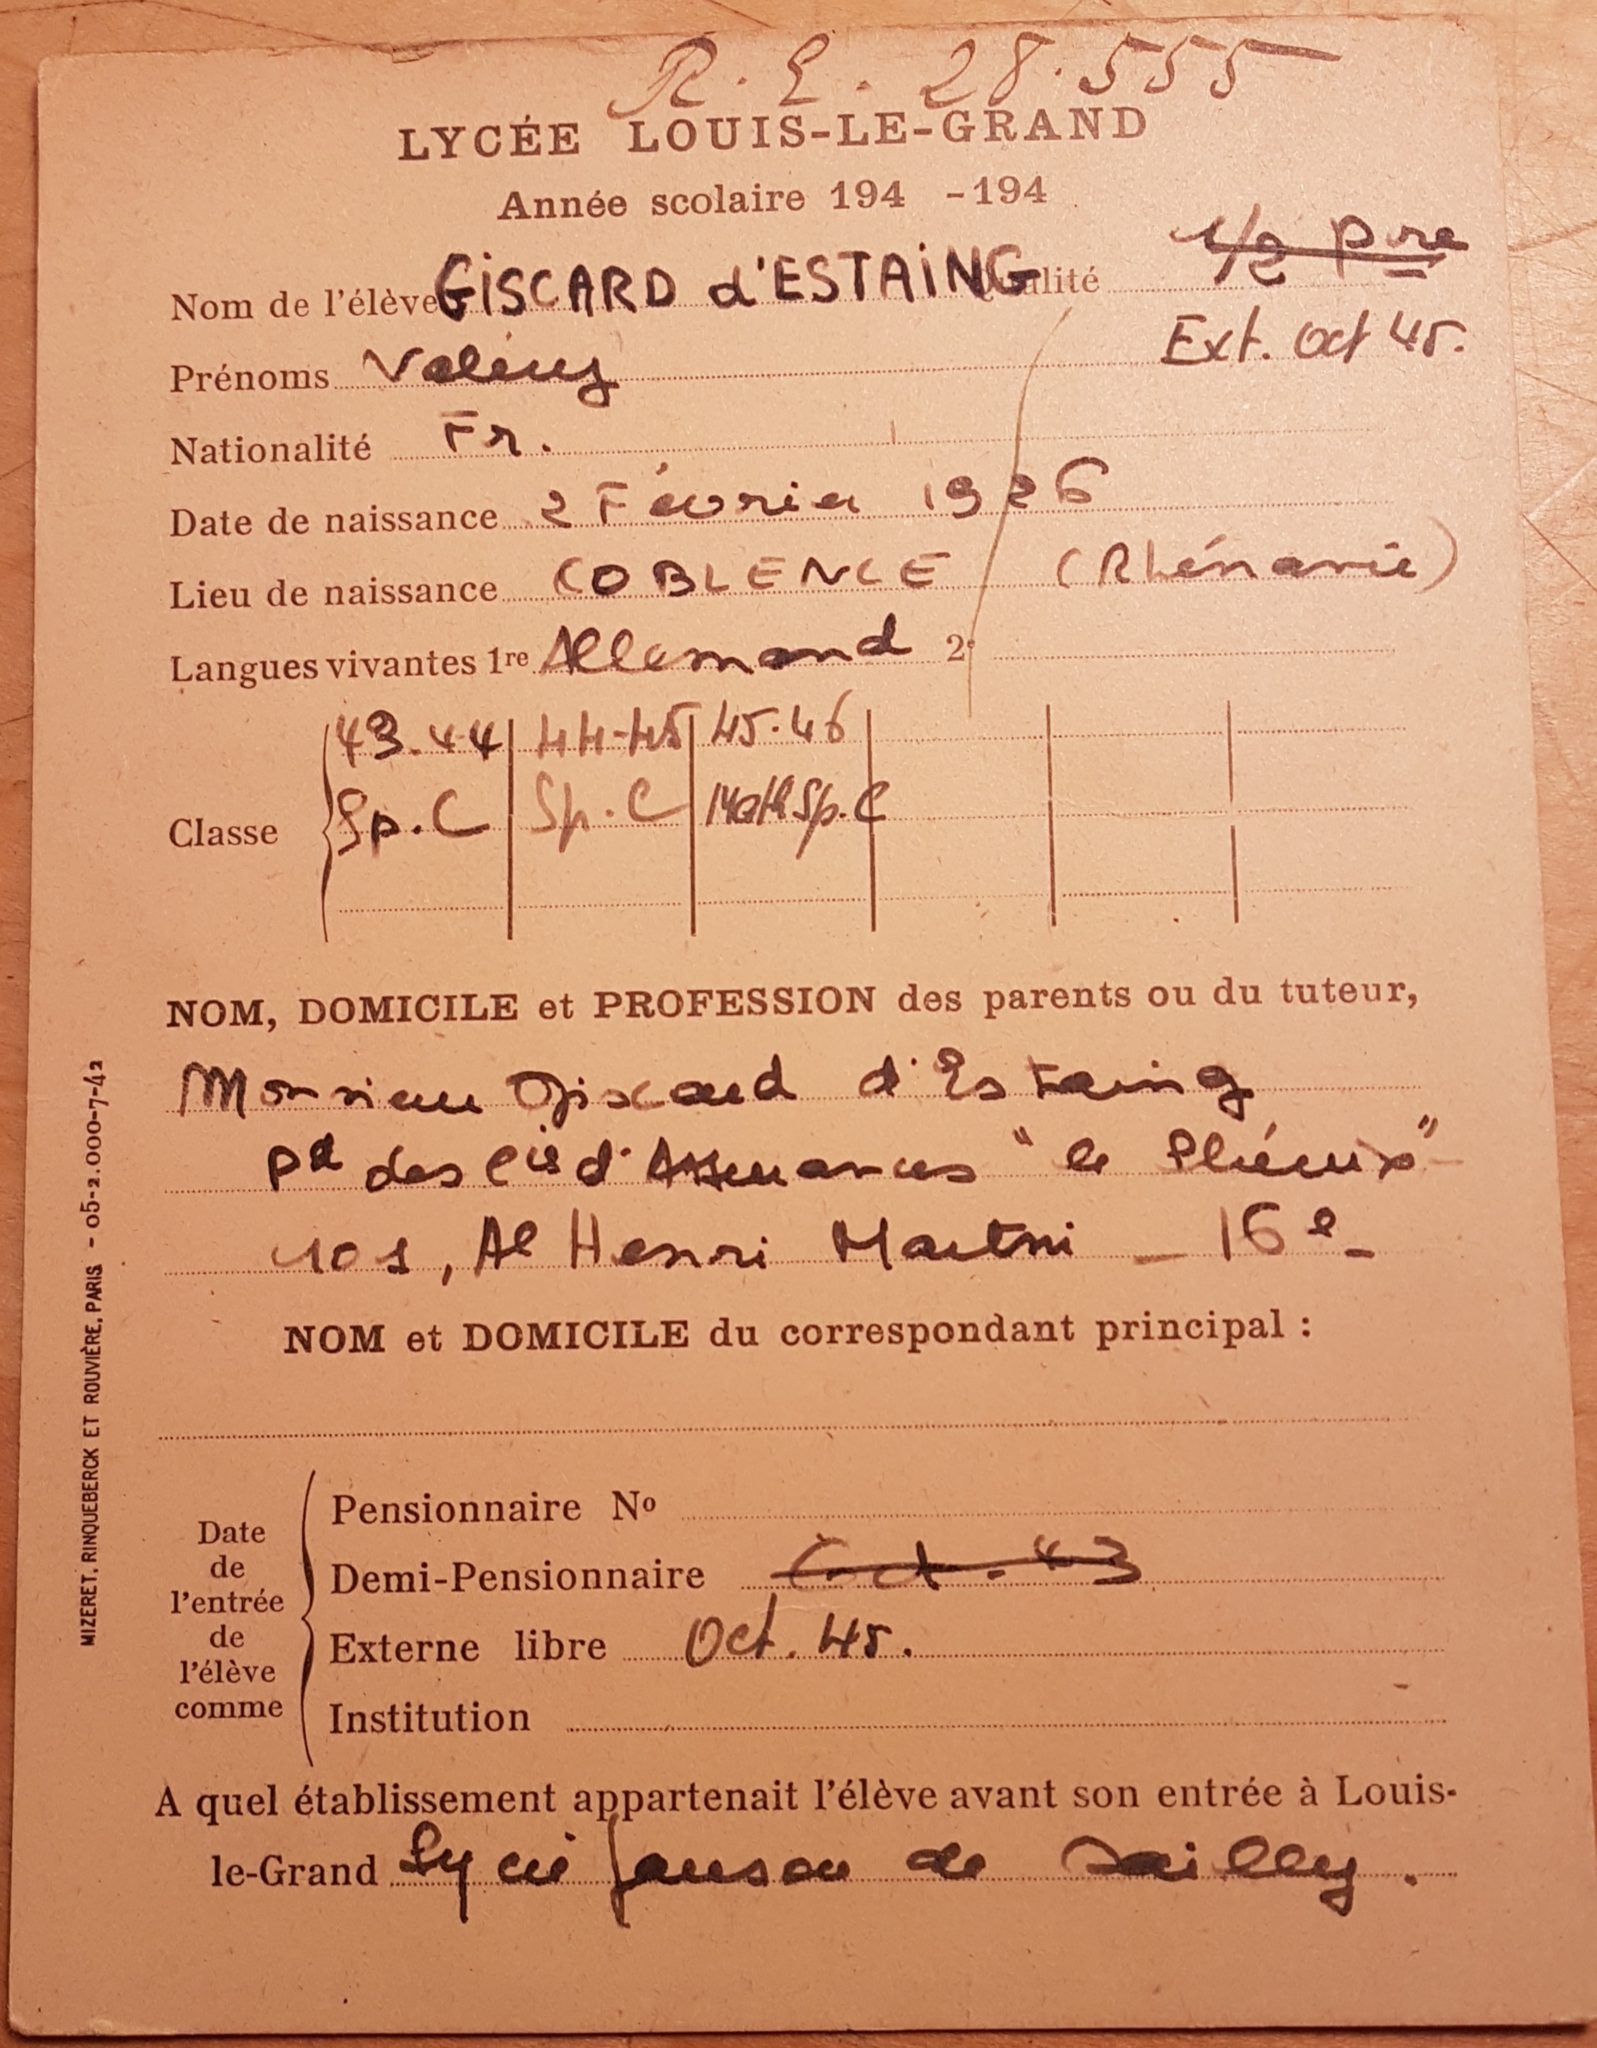 R. E. 28.555
LYCÉE LOUIS-LE-GRAND
Année scolaire 194 -194
1/2 Pre
Nom de l'élève GiSCARD d'ESTAiNG Qualité
Ext. Oct 45.
Prénoms Valéry
Nationalité Fr.
Date de naissance 2 Février 1926
Lieu de naissance COBLENCE (Rhénanie)
Langues vivantes 1re Allemand 2e
43.44 44-45 45.46
Classe Sp. C Sp. C Math Sp. C
NOM, DOMICILE et PROFESSION des parents ou du tuteur,
Monsieur Giscard d'Estaing
Pd des Cies d'Assurances "le Phénix"
101, Av Henri Martin - 16e -
NOM et DOMICILE du correspondant principal :
Date de l'entrée de l'élève comme
Pensionnaire No
Demi-Pensionnaire Oct. 43
Externe libre Oct. 45.
Institution
A quel établissement appartenait l'élève avant son entrée à Louis-
le-Grand Lycée Janson de Sailly.
MIZERET, RINQUEBERCK ET ROUVIÈRE, PARIS - 05-2.000-7-42